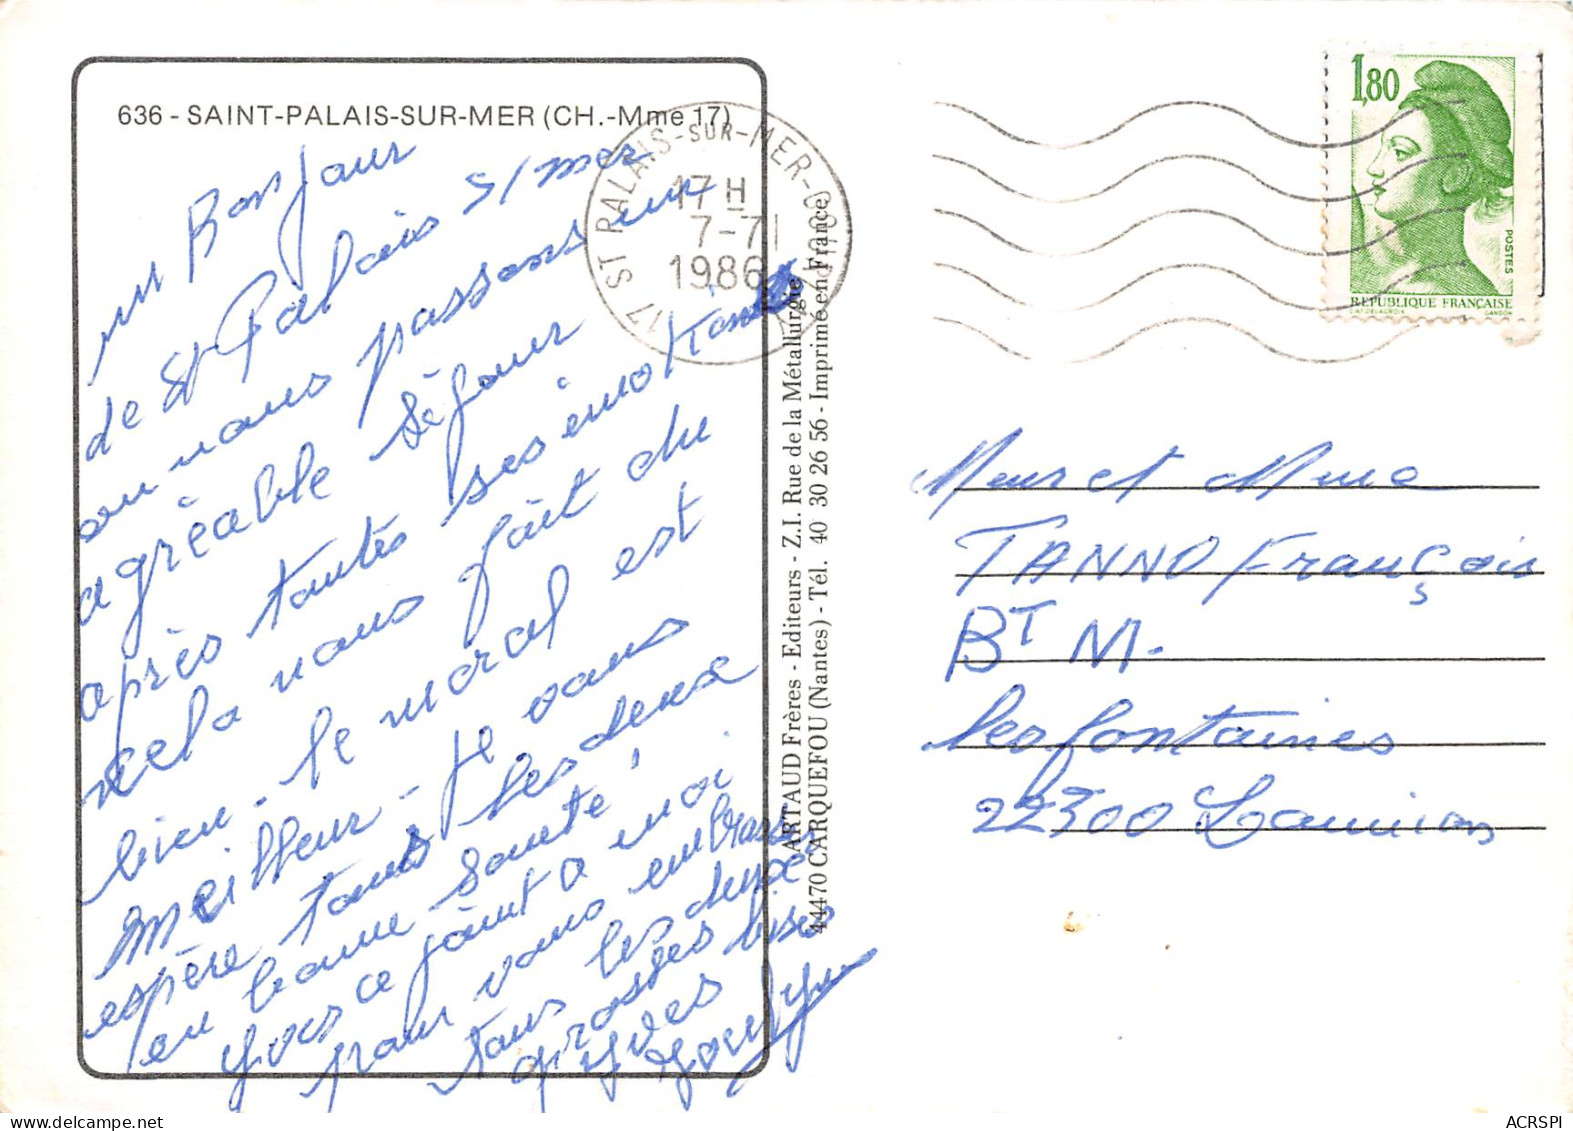 636 - SAINT-PALAIS-SUR-MER (CH.-Mme 17)
un Bonjour
de St Palais s/mer
ou nous passons un
agréable séjour
après toutes ses émotions
cela nous fait du
bien - le moral est
meilleur - Je vous
espère tous les deux
en bonne santé !
Yves ce joint a moi
pour vous embrasser
tous les deux
grosses bises
Yves
17 ST PALAIS-SUR-MER
17 H
7-7
1986
ARTAUD Frères - Editeurs - Z.I. Rue de la Métallurgie
44470 CARQUEFOU (Nantes) - Tél. 40 30 26 56 - Imprimé en France
1,80
POSTES
REPUBLIQUE FRANÇAISE
D'AP. DELACROIX GANDON
Meur et Mme
TANNO François
BT M.
les fontaines
22300 Lannion
ACRSPI